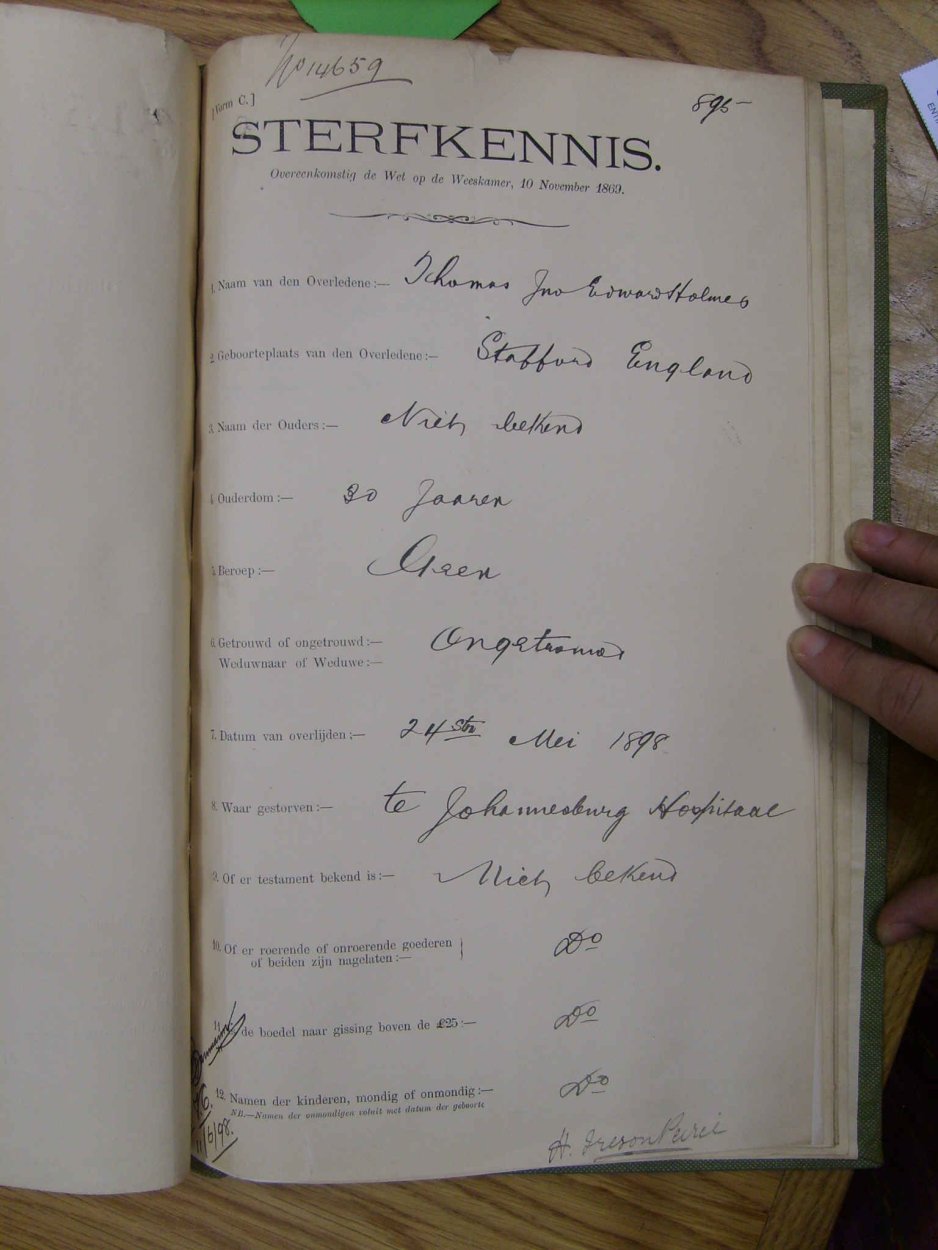 No 14659
[Form C.]
895
STERFKENNIS.
Overeenkomstig de Wet op de Weeskamer, 10 November 1869.
1. Naam van den Overledene:— Thomas Jno Edward Holmes
2. Geboorteplaats van den Overledene:— Stafford England
3. Naam der Ouders:— Niet bekend
4. Ouderdom:— 30 Jaaren
5. Beroep:— Geen
6. Getrouwd of ongetrouwd:— Ongetrouwd
Weduwnaar of Weduwe:—
7. Datum van overlijden:— 24ste Mei 1898
8. Waar gestorven:— te Johannesburg Hospitaal
9. Of er testament bekend is:— Niet bekend
10. Of er roerende of onroerende goederen
of beiden zijn nagelaten:— Do
11. de boedel naar gissing boven de £25:— Do
12. Namen der kinderen, mondig of onmondig:— Do
NB.—Namen der onmondigen voluit met datum der geboorte
11/6/98.
H.